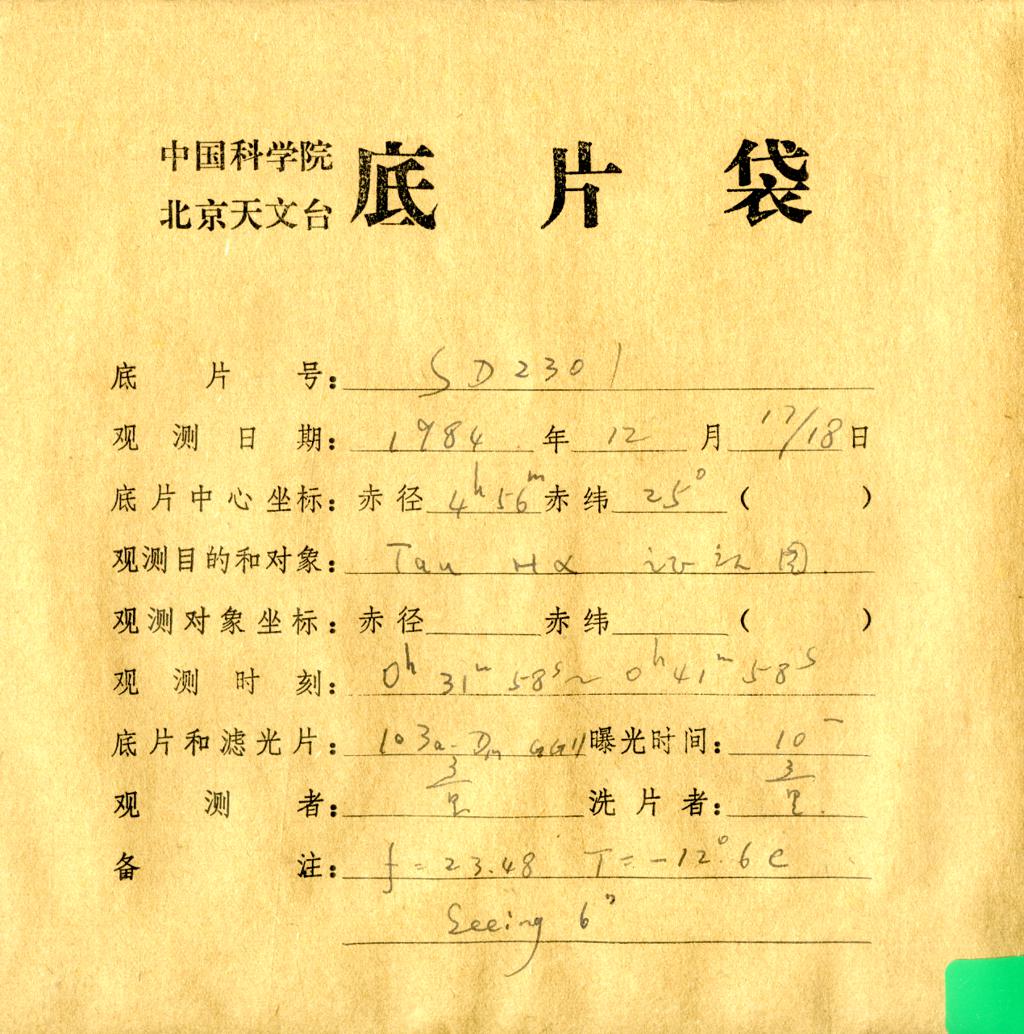 中国科学院
北京天文台
底片袋
底片号: SD2301
观测日期: 1984年12月17/18日
底片中心坐标: 赤径 4h 56m 赤纬 25° ( )
观测目的和对象: Tau Hα 证认图
观测对象坐标: 赤径 赤纬 ( )
观测时刻: 0h 31m 58s ~ 0h 41m 58s
底片和滤光片: 103a-D GG11 曝光时间: 10
观测者: 洗片者:
备注: f=23.48 T=-12°.6 C
Seeing 6"